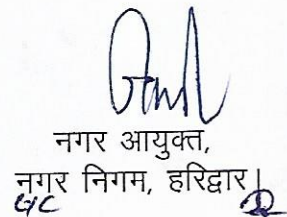 नगर आयुक्त,
नगर निगम, हरिद्वार|